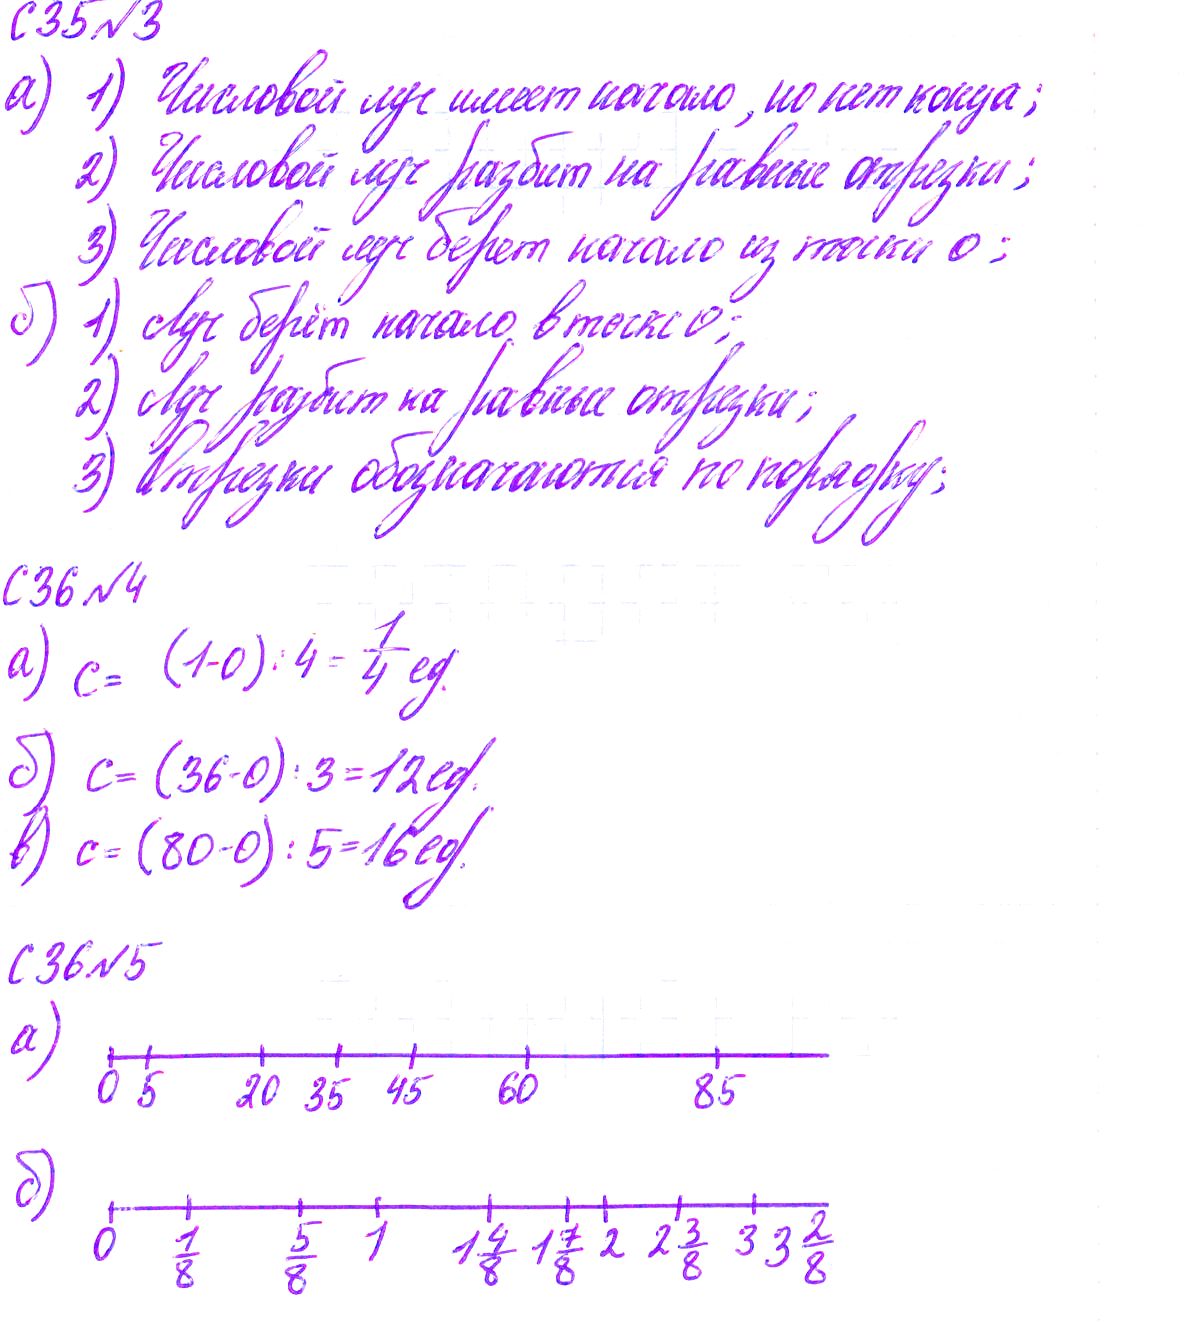 С35№3
а) 1) Числовой луч имеет начало, но нет конца;
2) Числовой луч разбит на равные отрезки;
3) Числовой луч берет начало из точки 0;
б) 1) Луч берёт начало в точке 0;
2) Луч разбит на равные отрезки;
3) Отрезки обозначаются по порядку;
С36№4
а) C= (1-0):4= 1/4 ед.
б) C= (36-0):3=12ед.
в) C= (80-0):5=16ед.
С36№5
а)
0 5 20 35 45 60 85
б)
0 1/8 5/8 1 1 4/8 1 7/8 2 2 3/8 3 3 2/8